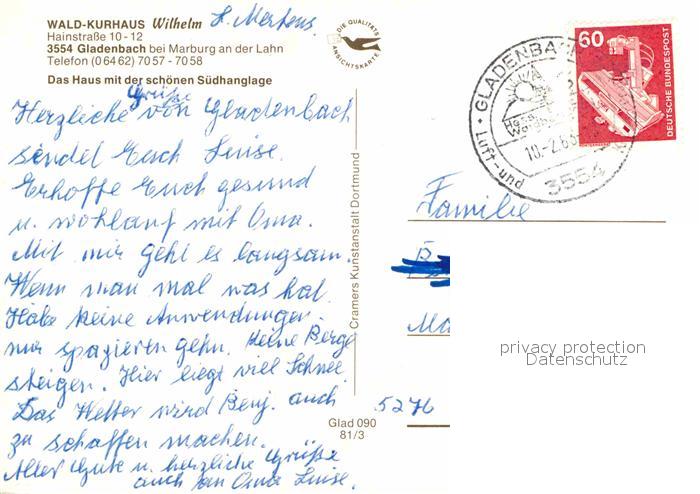 WALD-KURHAUS Wilhelm H. Mertens
Hainstraße 10 - 12
3554 Gladenbach bei Marburg an der Lahn
Telefon (0 64 62) 70 57 - 70 58
Das Haus mit der schönen Südhanglage
DIE QUALITÄTS
ANSICHTSKARTE
Herzliche Grüße von Gladenbach
sendet Euch Luise.
Erhoffe Euch gesund
u. wohlauf mit Oma.
Mit mir geht es langsam.
Wenn man mal was hat.
Habe keine Anwendungen.
nur spazieren gehn. Keine Berge
steigen. Hier liegt viel Schnee.
Das Wetter wird Benj. auch
zu schaffen machen.
Alles Gute u. herzliche Grüße
auch an Oma Luise.
Cramers Kunstanstalt Dortmund
Glad 090
81/3
60
DEUTSCHE BUNDESPOST
GLADENBACH
Luft- und
3554
Familie
Ma
5276
privacy protection
Datenschutz